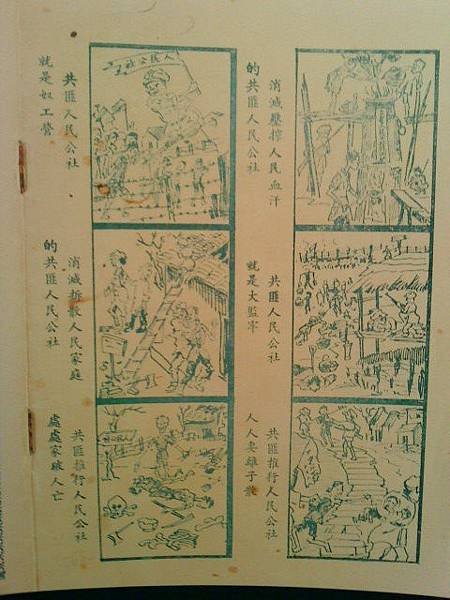 消滅壓榨人民血汗
的共匪人民公社
共匪人民公社
就是大監牢
共匪推行人民公社
人人妻離子散
人民公社
共匪人民公社
就是奴工營
消滅拆散人民家庭
的共匪人民公社
共匪推行人民公社
處處家破人亡